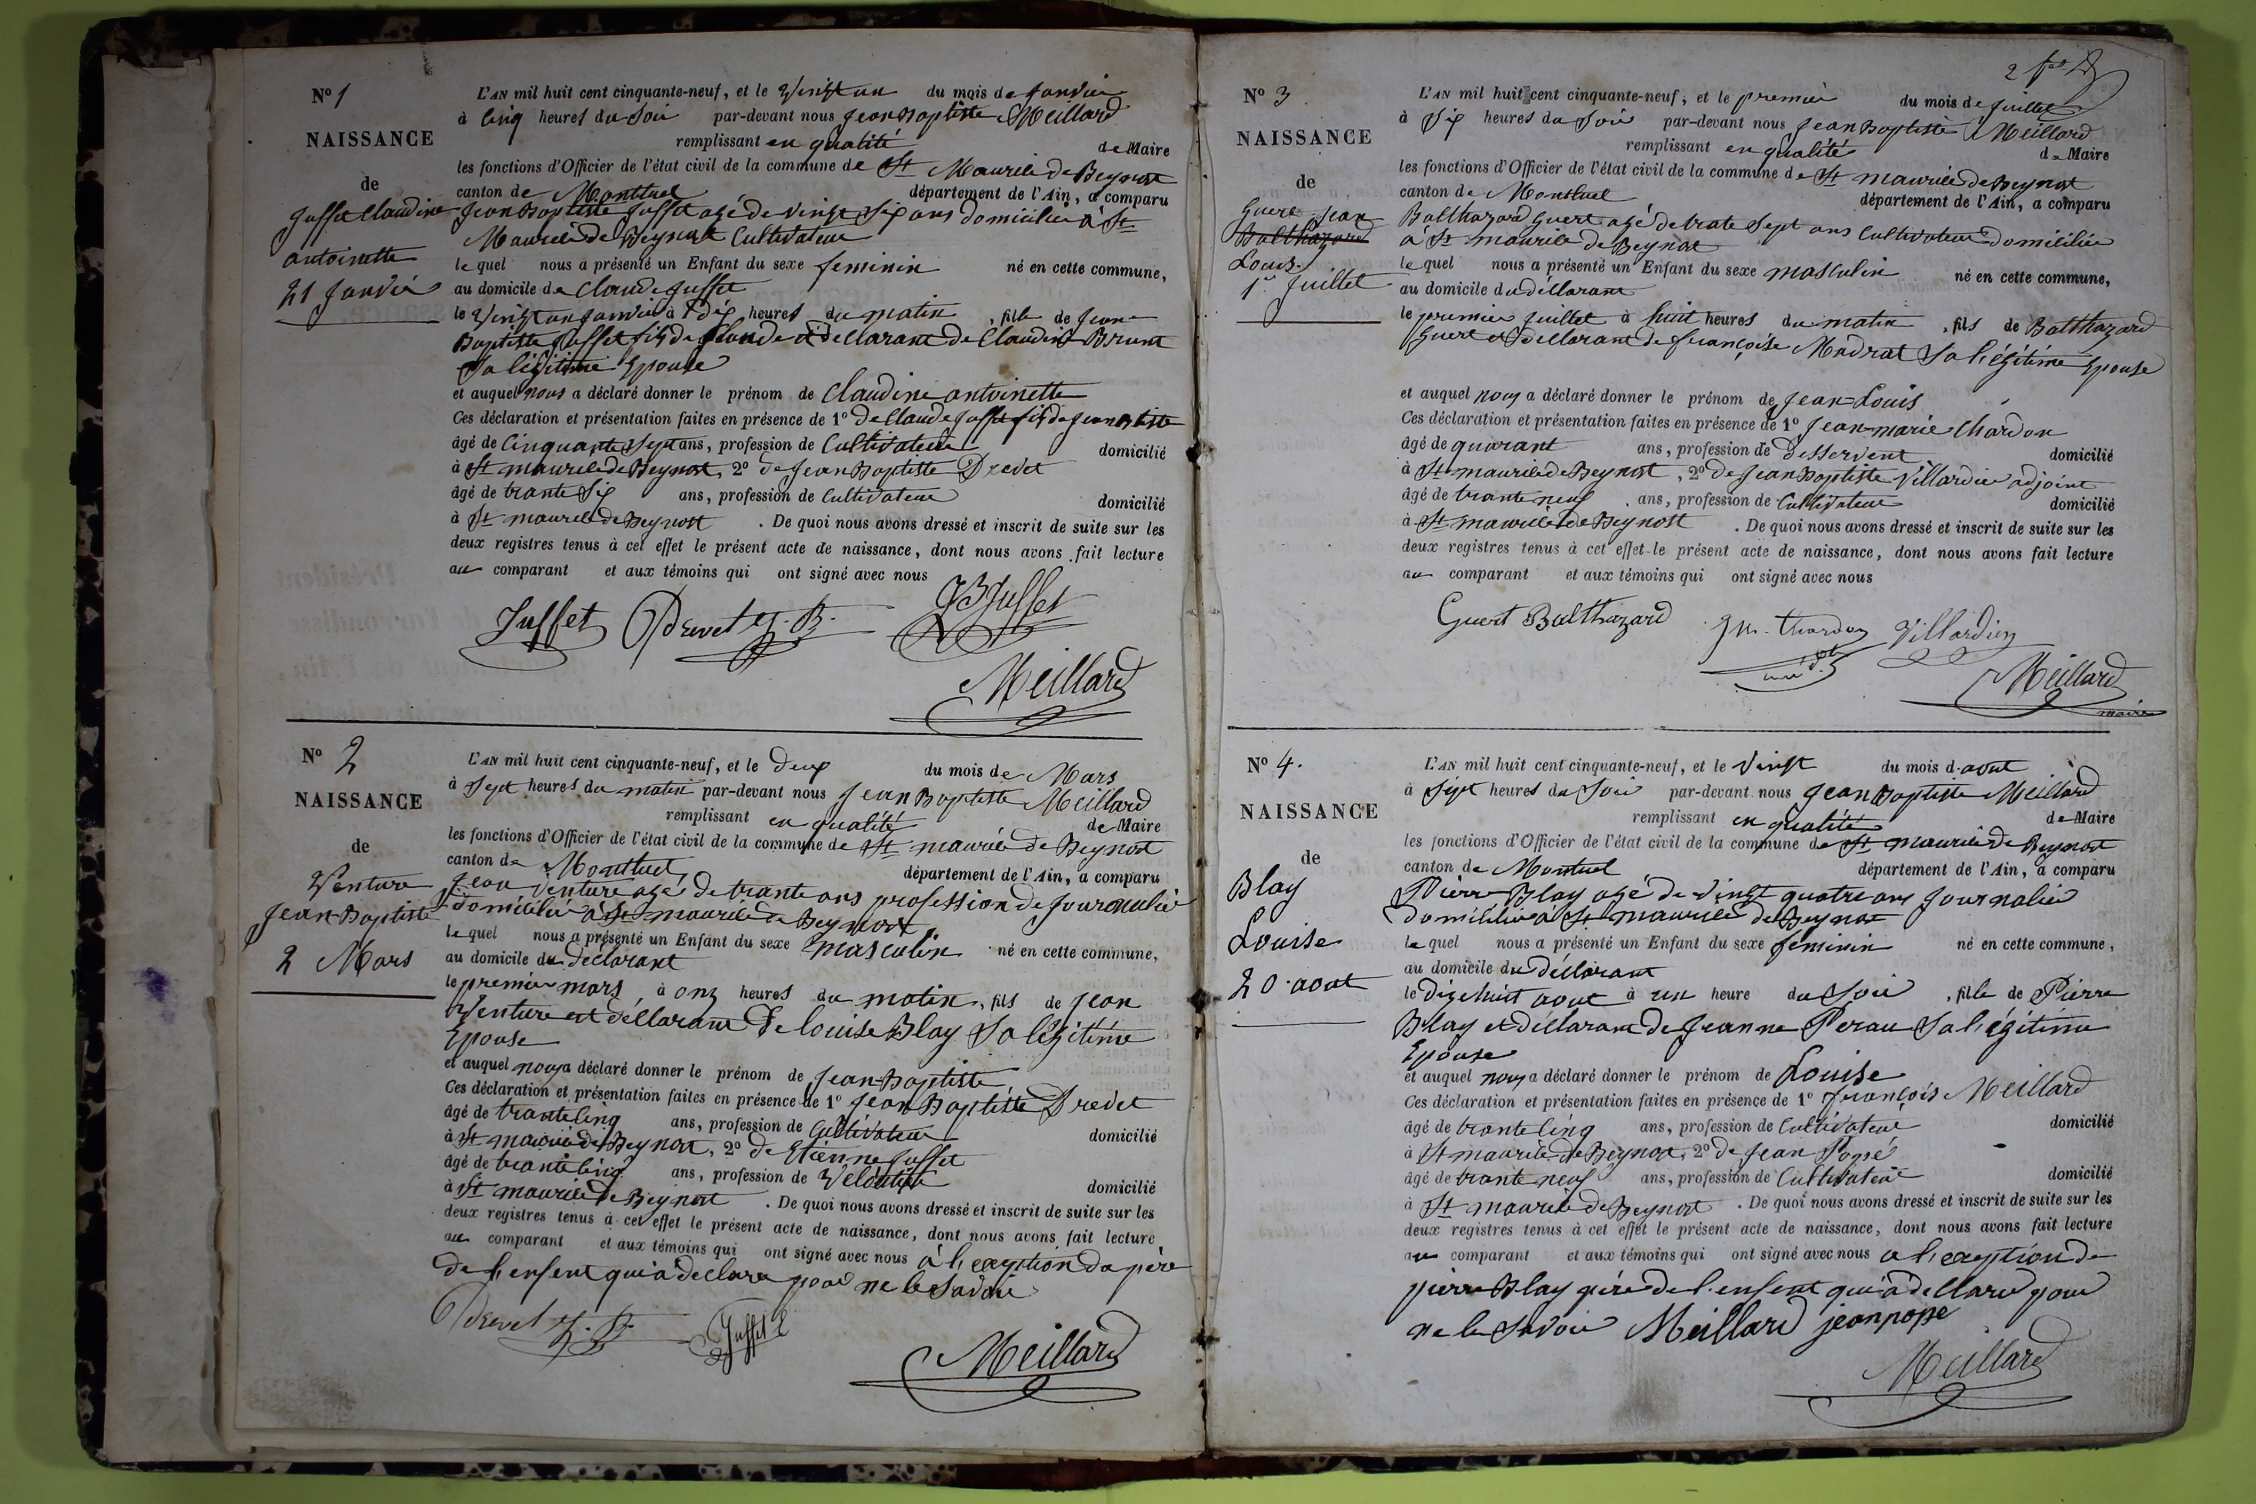 N° 1
NAISSANCE
de
Juffet Claudine
antoinette
21 Janvié
L'AN mil huit cent cinquante-neuf, et le Vingt un du mois de Janvier
à Cinq heures du Soir par-devant nous Jean Baptiste Meillard
remplissant en qualité de Maire
les fonctions d'Officier de l'état civil de la commune de St Maurice de Beynost
canton de Montluel département de l'Ain, a comparu
Jean Baptiste Juffet agé de vingt Six ans domicilié à St
Maurice de Beynost Cultivateur
lequel nous a présenté un Enfant du sexe feminin né en cette commune,
au domicile de Claude Juffet
le Vingt un Janvier à dix heures du matin, fille de Jean
Baptiste Juffet fils de Claude et declarant de Claudine Brunt
Sa légitime Epouse
et auquel nous a déclaré donner le prénom de Claudine antoinette
Ces déclaration et présentation faites en présence de 1° de Claude Juffet fils de Jean Btiste
âgé de Cinquante Sept ans, profession de Cultivateur domicilié
à St maurice de Beynost, 2° de Jean Baptiste Drevet
âgé de trante Six ans, profession de Cultivateur domicilié
à St maurice de Beynost. De quoi nous avons dressé et inscrit de suite sur les
deux registres tenus à cet effet le présent acte de naissance, dont nous avons fait lecture
au comparant et aux témoins qui ont signé avec nous
Juffet Drevet J. B. JB Juffet
Meillard
N° 2
NAISSANCE
de
Venture
Jean-Baptiste
2 Mars
L'AN mil huit cent cinquante-neuf, et le deux du mois de Mars
à Sept heures du matin par-devant nous Jean Baptiste Meillard
remplissant en qualité de Maire
les fonctions d'Officier de l'état civil de la commune de St maurice de Beynost
canton de Montluel département de l'Ain, a comparu
Jean Venture agé de trante ans profession de Journalié
domicilié à St maurice de Beynost
lequel nous a présenté un Enfant du sexe masculin né en cette commune,
au domicile du declarant
le premier mars à onz heures du matin, fils de Jean
Venture et déclarant de louise Blay Sa légitime
Epouse
et auquel nous a déclaré donner le prénom de Jean-Baptiste
Ces déclaration et présentation faites en présence de 1° Jean Baptiste Drevet
âgé de trante cinq ans, profession de Cultivateur domicilié
à St maurice de Beynost, 2° de Etienne Juffet
âgé de trante cinq ans, profession de domicilié
à St maurice de Beynost. De quoi nous avons dressé et inscrit de suite sur les
deux registres tenus à cet effet le présent acte de naissance, dont nous avons fait lecture
au comparant et aux témoins qui ont signé avec nous à l'exception du père
de l'enfent qui à declare pour ne le Savoir
Drevet J. B. Juffet E
Meillard
2 f
N° 3
NAISSANCE
de
Guert Jean
Balthazard
Louis.
1er Juillet
L'AN mil huit cent cinquante-neuf, et le premier du mois de Juillet
à Six heures du Soir par-devant nous Jean Baptiste Meillard
remplissant en qualité de Maire
les fonctions d'Officier de l'état civil de la commune de St maurice de Beynost
canton de Montluel département de l'Ain, a comparu
Balthazard Guert agé de trate Sept ans Cultivateur domicilié
à St maurice de Beynost
lequel nous a présenté un Enfant du sexe masculin né en cette commune,
au domicile du déclarant
le premier Juillet à huit heures du matin, fils de Balthazard
Guert et declarant de françoise Madrat Sa légitime Epouse
et auquel nous a déclaré donner le prénom de Jean-Louis
Ces déclaration et présentation faites en présence de 1° Jean-marie Chardon
âgé de quarant ans, profession de desservent domicilié
à St maurice de Beynost, 2° de Jean Baptiste Villardier adjoint
âgé de trante neuf ans, profession de Cultivateur domicilié
à St maurice de Beynost. De quoi nous avons dressé et inscrit de suite sur les
deux registres tenus à cet effet le présent acte de naissance, dont nous avons fait lecture
au comparant et aux témoins qui ont signé avec nous
Guert Balthazard J M. Chardon Villardier
Meillard
maire
N° 4.
NAISSANCE
de
Blay
Louise
20 aout
L'AN mil huit cent cinquante-neuf, et le vingt du mois d'aout
à Sept heures du Soir par-devant nous Jean Baptiste Meillard
remplissant en qualité de Maire
les fonctions d'Officier de l'état civil de la commune de St maurice de Beynost
canton de Montluel département de l'Ain, a comparu
Pierre Blay agé de vingt quatre ans Journalié
domicilié à St maurice de Beynost
lequel nous a présenté un Enfant du sexe feminin né en cette commune,
au domicile du déclarant
le dixehuit aout à un heure du Soir, fille de Pierre
Blay et déclarant de Jeanne Perau Sa légitime
Epouse
et auquel nous a déclaré donner le prénom de Louise
Ces déclaration et présentation faites en présence de 1° françois Meillard
âgé de trante cinq ans, profession de Cultivateur domicilié
à St maurice de Beynost, 2° de Jean Popé
âgé de trante neuf ans, profession de Cultivateur domicilié
à St maurice de Beynost. De quoi nous avons dressé et inscrit de suite sur les
deux registres tenus à cet effet le présent acte de naissance, dont nous avons fait lecture
au comparant et aux témoins qui ont signé avec nous a l'exeption de
pierre Blay père de l'enfent qui à declaré pour
ne le Savoir Meillard jean pope
Meillard